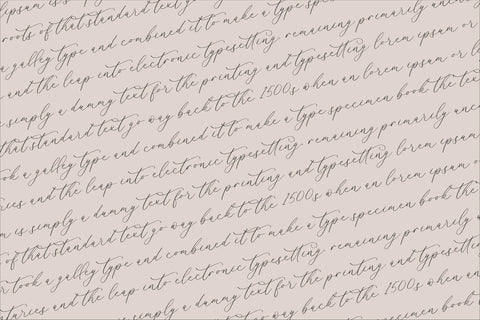 ipsum is
roots of that standard text
a galley type and combined it to make a type
and the leap into electronic typesetting remaining primarily
simply a dummy text for the printing and typesetting lorem ipsum
that standard text go way back to the 1500s when an lorem ipsum or
took a galley type and combined it to make a type specimen book the tex
and the leap into electronic typesetting remaining primarily unc
is simply a dummy text for the printing and typesetting lorem ipsum
of that standard text go way back to the 1500s when an lorem ipsum or
or took a galley type and combined it to make a type specimen book the
and the leap into electronic typesetting remaining primarily
simply a dummy text for the printing and typesetting
text go way back to the 1500s when an
combined it to make a type specimen book the
typesetting remaining